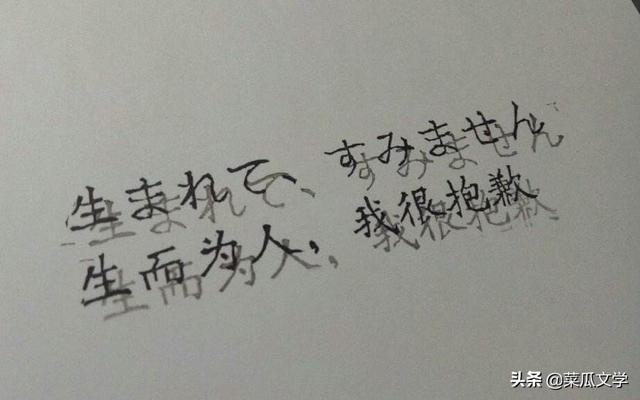 生まれて、すみません
生而为人，我很抱歉
头条 @菜瓜文学